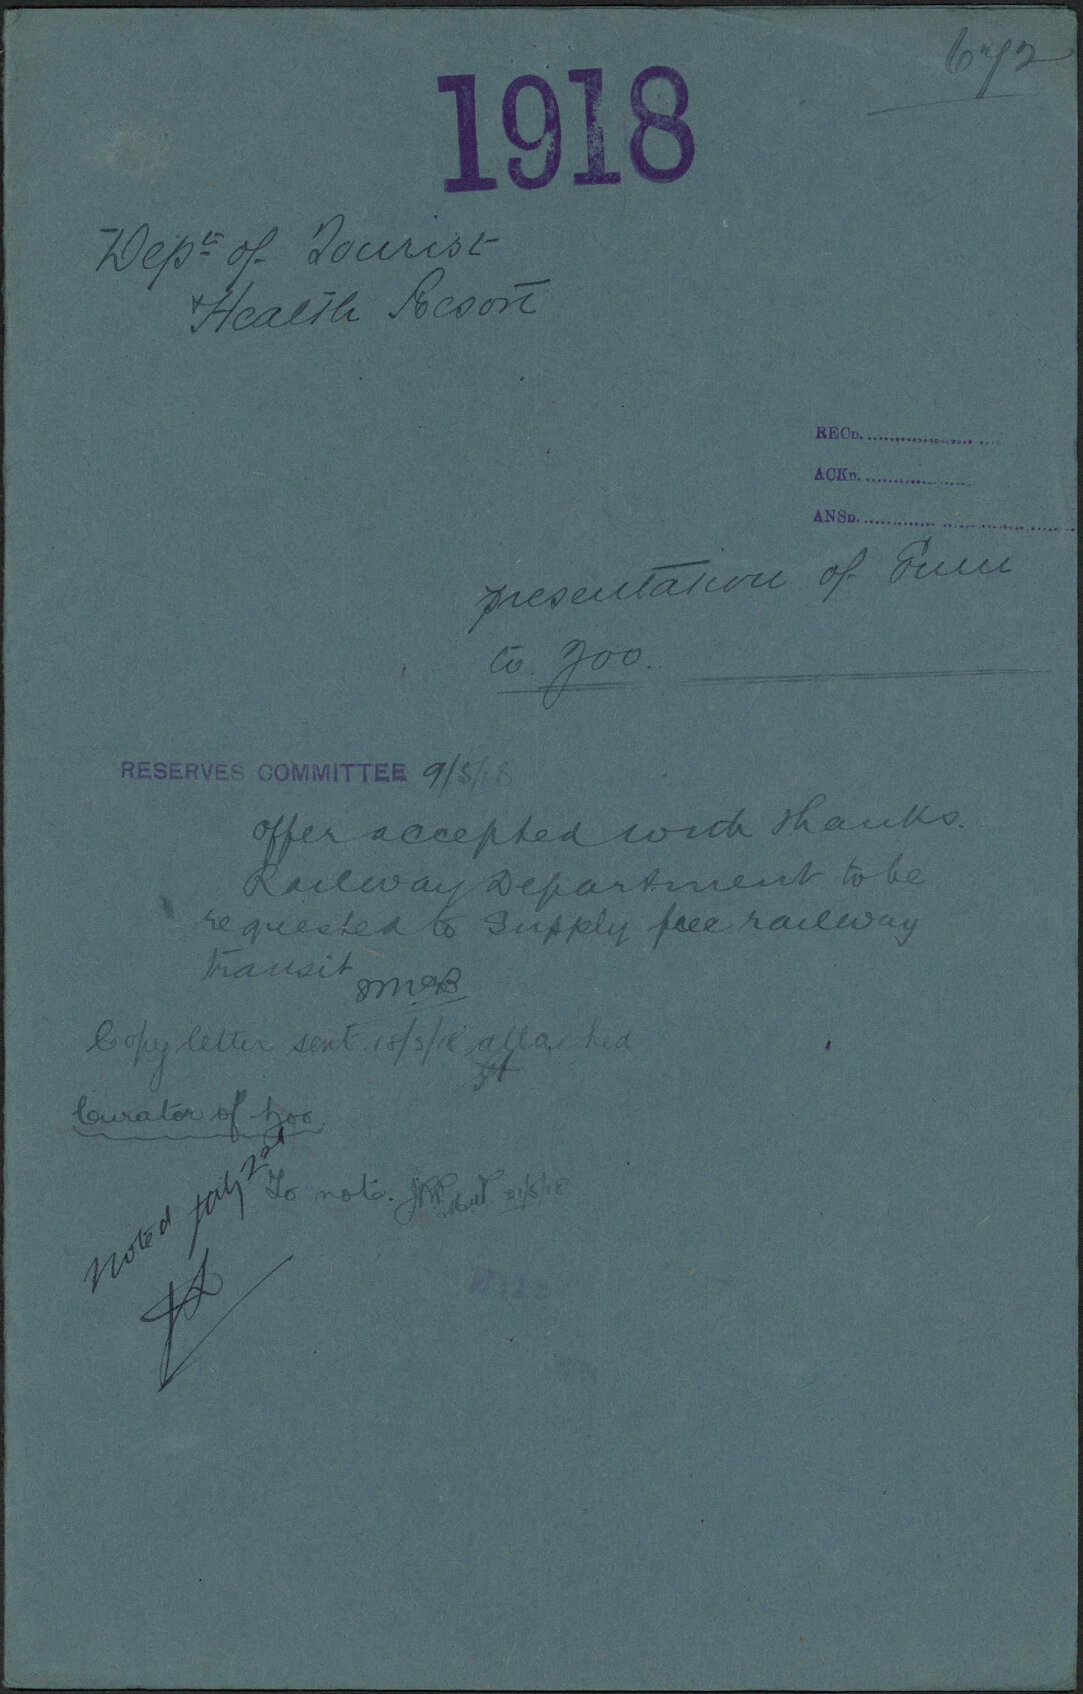 672
1918
Dept of Tourist
& Health Resort
RECD.
ACKD.
ANSD.
presentation of Emu
to Zoo.
RESERVES COMMITTEE 9/5/18
Offer accepted with thanks.
Railway Department to be
requested to supply free railway
transit
Copy letter sent 18/5/18 attached
Curator of Zoo
To note. 21/5/18
Noted July 22d